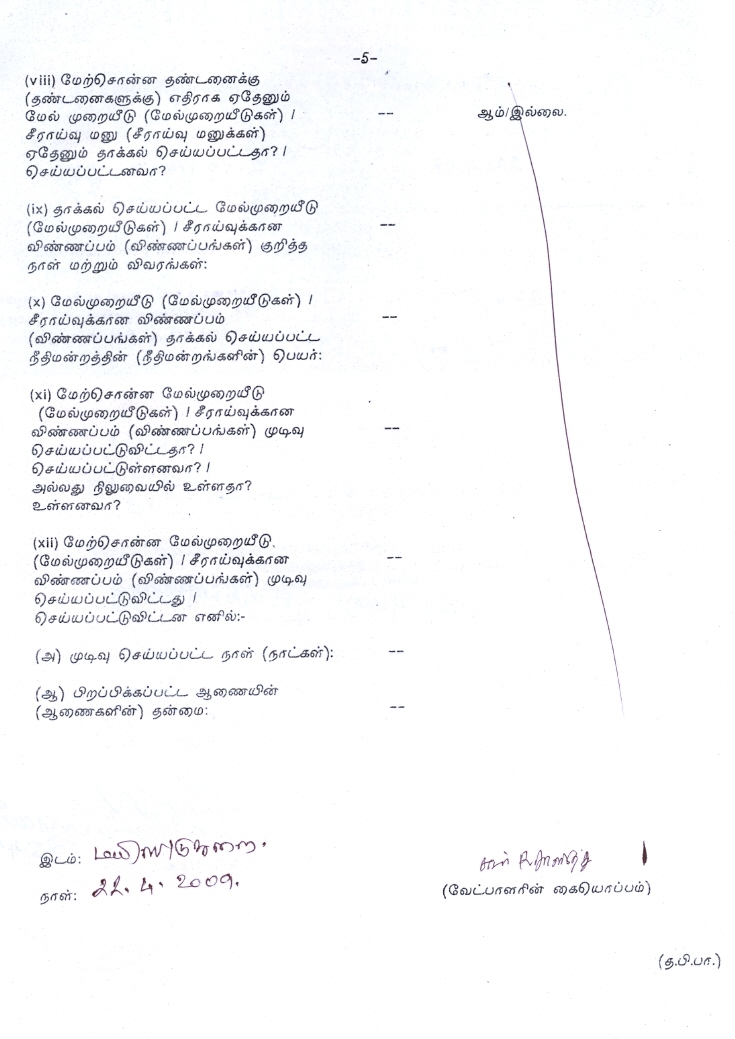 –5–
(viii) மேற்சொன்ன தண்டனைக்கு
(தண்டனைகளுக்கு) எதிராக ஏதேனும்
மேல் முறையீடு (மேல்முறையீடுகள்) / -- ஆம்/இல்லை.
சீராய்வு மனு (சீராய்வு மனுக்கள்)
ஏதேனும் தாக்கல் செய்யப்பட்டதா? /
செய்யப்பட்டனவா?
(ix) தாக்கல் செய்யப்பட்ட மேல்முறையீடு
(மேல்முறையீடுகள்) / சீராய்வுக்கான --
விண்ணப்பம் (விண்ணப்பங்கள்) குறித்த
நாள் மற்றும் விவரங்கள்:
(x) மேல்முறையீடு (மேல்முறையீடுகள்) /
சீராய்வுக்கான விண்ணப்பம் --
(விண்ணப்பங்கள்) தாக்கல் செய்யப்பட்ட
நீதிமன்றத்தின் (நீதிமன்றங்களின்) பெயர்:
(xi) மேற்சொன்ன மேல்முறையீடு
(மேல்முறையீடுகள்) / சீராய்வுக்கான
விண்ணப்பம் (விண்ணப்பங்கள்) முடிவு --
செய்யப்பட்டுவிட்டதா? /
செய்யப்பட்டுள்ளனவா? /
அல்லது நிலுவையில் உள்ளதா?
உள்ளனவா?
(xii) மேற்சொன்ன மேல்முறையீடு
(மேல்முறையீடுகள்) / சீராய்வுக்கான --
விண்ணப்பம் (விண்ணப்பங்கள்) முடிவு
செய்யப்பட்டுவிட்டது /
செய்யப்பட்டுவிட்டன எனில்:-
(அ) முடிவு செய்யப்பட்ட நாள் (நாட்கள்): --
(ஆ) பிறப்பிக்கப்பட்ட ஆணையின்
(ஆணைகளின்) தன்மை: --
இடம்: மயிலாடுதுறை.
நாள்: 22. 4. 2009.
(வேட்பாளரின் கையொப்பம்)
(த.பி.பா.)